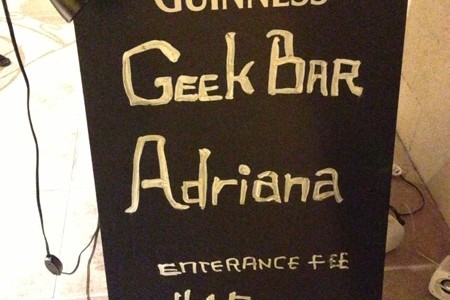 GUINNESS
GEEK BAR
Adriana
ENTERANCE FEE